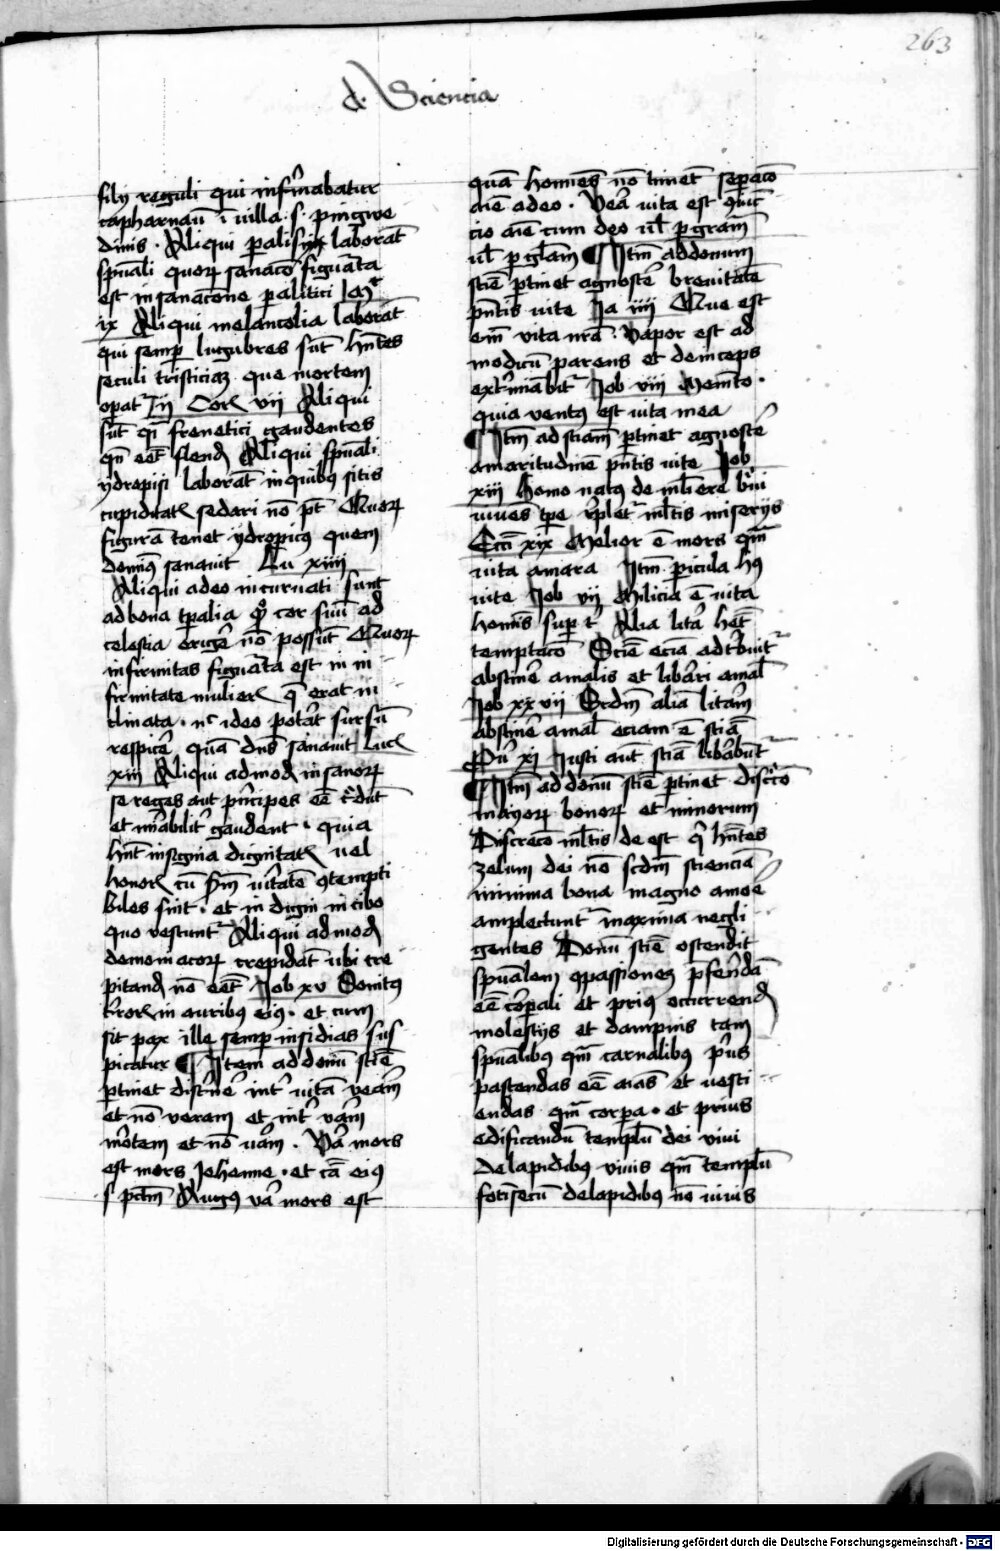 263
de Sciencia
filij reguli qui infirmabatur
capharnaū ī villa .s. pingwe
dinis . Aliqui palisim laborāt
spūali quorum sanacō figurata
est in sanacōne paralitici Mr
ix Aliqui melancolia laborāt
qui semp lugubres sūt hn̄tes
seculi tristiciam que mortem
opat̄ ij Cor vii Aliqui
sūt qī frenetici gaudentes
qn̄ eēt flend Aliqui spūali
ydropisi laborāt in quibus sitis
cupiditat sedari nō pt̄ Quorum
figurā tenet ydropicus quem
dominus sanauit Lu xiiii
Aliqui adeo incuruati sunt
ad bona tpalia qd cor suū ad
celestia erigē nō possūt Quorum
infirmitas figurata est in in
firmitate mulier q̄ erat in
clinata . nc ideo potat sursū
respicē quā dn̄s sanauit Luc
xiii Aliqui admod insanorum
se reges aut pncipes eē cdūt
et mrabilit gaudent . quia
hnt insignia dignitat uel
honor cū scdm uitatē contempti
biles sint . et indigni in cibo
quo vescunt Aliqui admod
demoniacorum trepidāt ubi tre
pitand nō eēt Job xv Sonitus
terror in auribus eius . et cum
sit pax ille semp insidias sus
picatur ¶ Item ad donū sciē
ptinet discnē int uitā veam
et nō veram et int vam
mortem et nō uam . Va mors
est mors Jehenne . et cā eius
s. pctm̄ Augus va mors est
quā homīes nō timēt sepacō
aīe a deo . Vea uita est coniūc
cio aīe cum deo ul p gram
ul p glam ¶ Itm̄ ad donum
sciē ptinet agnoscē breuitatē
pn̄tis uite Ja iiii Que est
em̄ vita nra . Vapor est ad
modicū parens et deinceps
extmiabit Job viii Memto .
quia ventus est uita mea
¶ Itm̄ ad sciam ptinet agnoscē
amaritudinē pn̄tis uite Job
xiiii Homo natus de mliere breui
viuēs tpe replet mltis miserijs
Ecci xix Melior ē mors qm̄
uita amara Itm̄ picula hus
uite Job vij Milicia ē uita
homis sup tr Alia lita het
temptacō Sciē eciā adtbuit
abstinē a malis et libari a mal
Job xxviij Scdm aliā litam
abstinē a mal eciam ē sciā
Pu xi Justi aut sciā libabunt
¶ Itm̄ ad donū sciē ptinet discrecō
maiorum bonorum et minorum
Discrecō mltis deest q hn̄tes
zelum dei nō scdm scienciā
minima bona magno amoē
amplectunt maxima negli
gentes Donū sciē ostendit
spūalem compassionem pferendā
eē corpali et prius occurrend
molestijs et dampnis tam
spūalibus qm̄ carnalibus prius
pascendas eē aīas et uesti
endas qm̄ corpa . et prius
edificandū templū dei viui
de lapidibus viuis qm̄ templū
de lapidibus nō uiuis
Digitalisierung gefördert durch die Deutsche Forschungsgemeinschaft - DFG